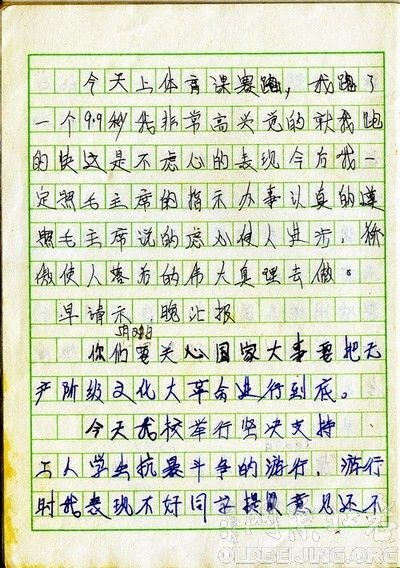 今天上体育课赛跑，我跑了
一个9.9秒我非常高兴觉的就我跑
的快这是不虑心的表现今后我一
定照毛主席的指示办事认真的遵
照毛主席说的虑心使人进步，骄
傲使人落后的伟大真理去做。
早请示，晚汇报
你们要关心国家大事要把无
产阶级文化大革命进行到底。
今天我校举行坚决支持
工人学生抗暴斗争的游行，游行
时我表现不好同学提意见还不
OLDBEIJING.ORG